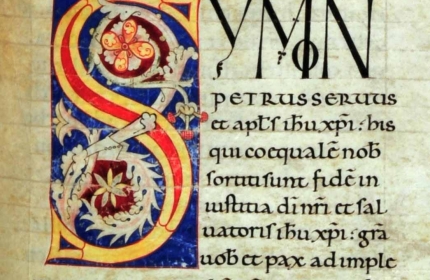 SYMON
PETRUS SERUUS
et apłs ihu xp̄i: his
qui coequalē nob̄
sortiti sunt fidē in
iustitia dī nr̄i et sal
uatoris ihu xp̄i: gr̄a
uob̄ et pax adimple